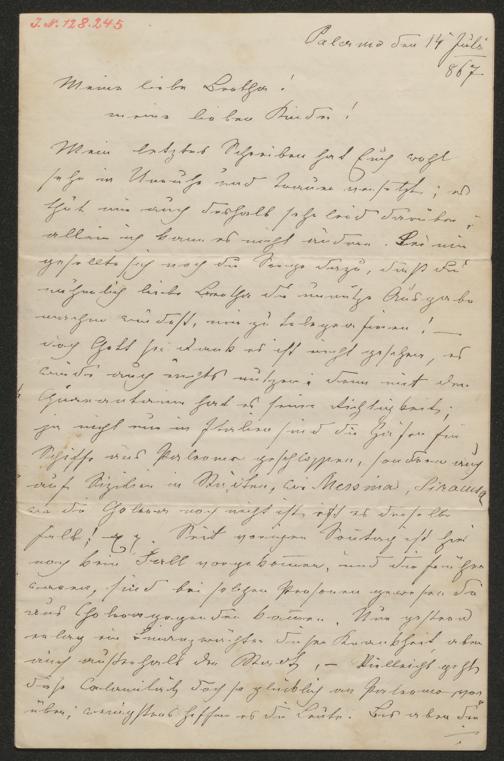 J.N. 128.245
Palermo den 14 Juli
867
Meine liebe Bertha!
meine lieben Kinder!
Mein letztes Schreiben hat Euch wohl
sehr in Unruhe und Trauer versetzt; es
thut mir auch deshalb sehr leid darüber,
allein ich kann es nicht ändern. Bei mir
gesellte sich noch die Sorge dazu, daß Du
nähmlich liebe Bertha die unnütze Ausgabe
machen würdest, mir zu telegrafieren! —
doch Gott sei Dank es ist nicht geschehen, es
würde auch nichts nützen; denn mit der
Quarantaine hat es seine Richtigkeit;
ja nicht nur in Italien sind die Häfen für
Schiffe aus Palermo geschlossen, sondern auch
auf Sizilien in Städten, wie Messina, Siracusa
wo die Colera noch nicht ist, ist es derselbe
Fall! Seit vorigen Sonntag ist hier
noch kein Fall vorgekommen, und die früher
waren, sind bei solchen Personen gewesen die
aus Choleragegenden kamen. Nur gestern
erlag ein Finanzwächter dieser Krankheit, aber
auch außerhalb der Stadt, — Vielleicht geht
diese Calamität doch so glücklich an Palermo vor
über; wenigstens hoffen es die Leute. Bis aber die